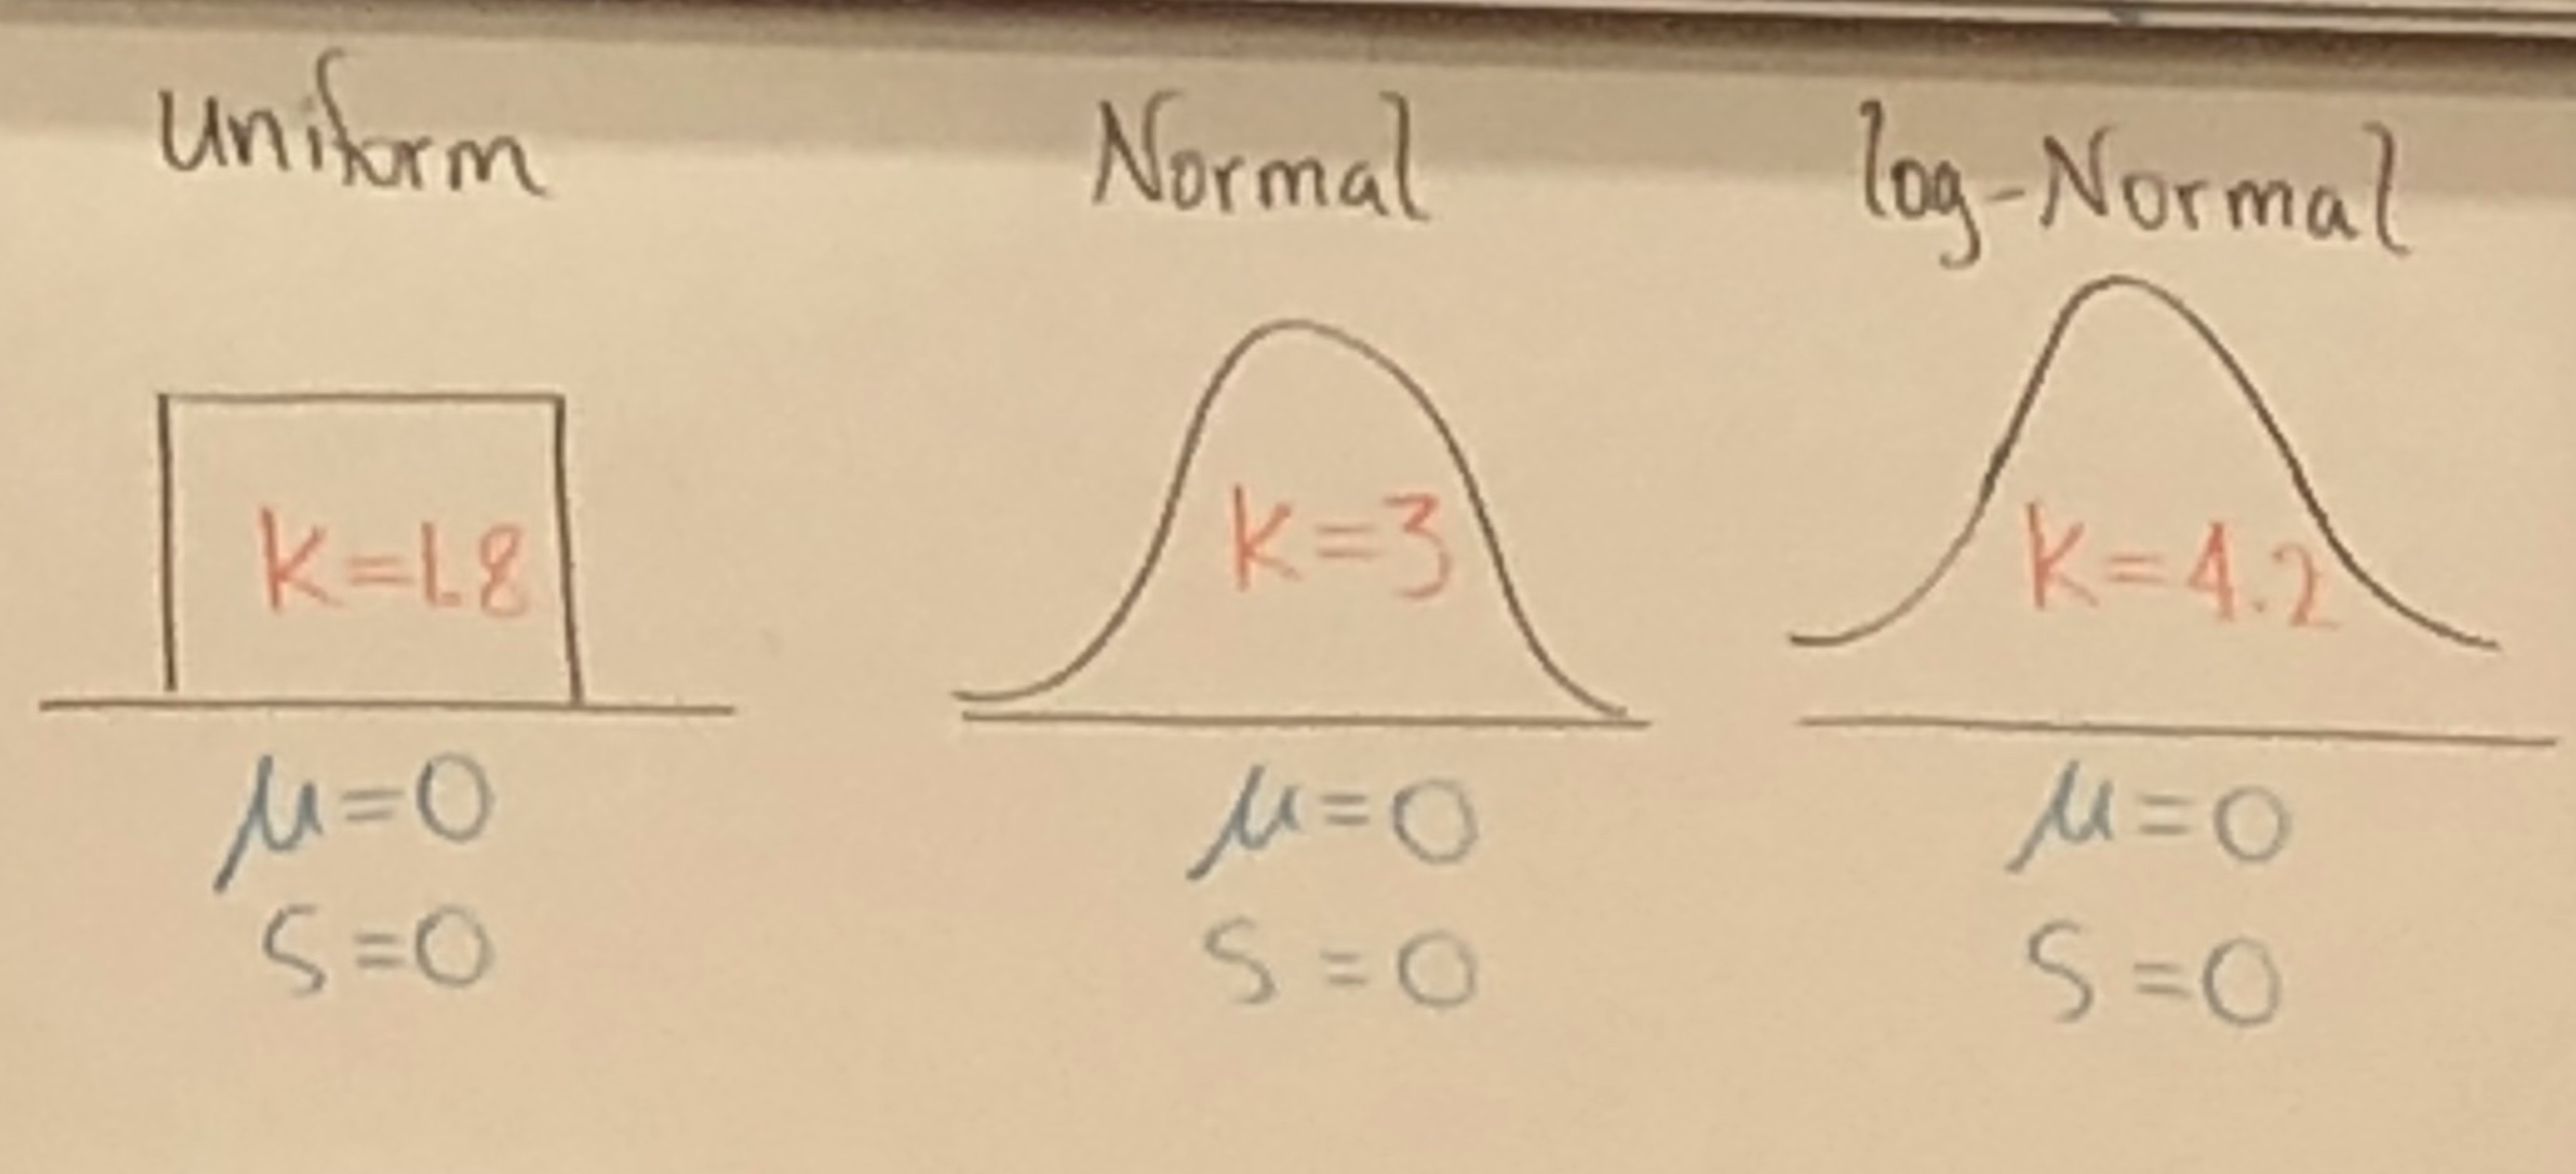 Uniform
K=1.8
μ=0
S=0
Normal
K=3
μ=0
S=0
log-Normal
K=4.2
μ=0
S=0